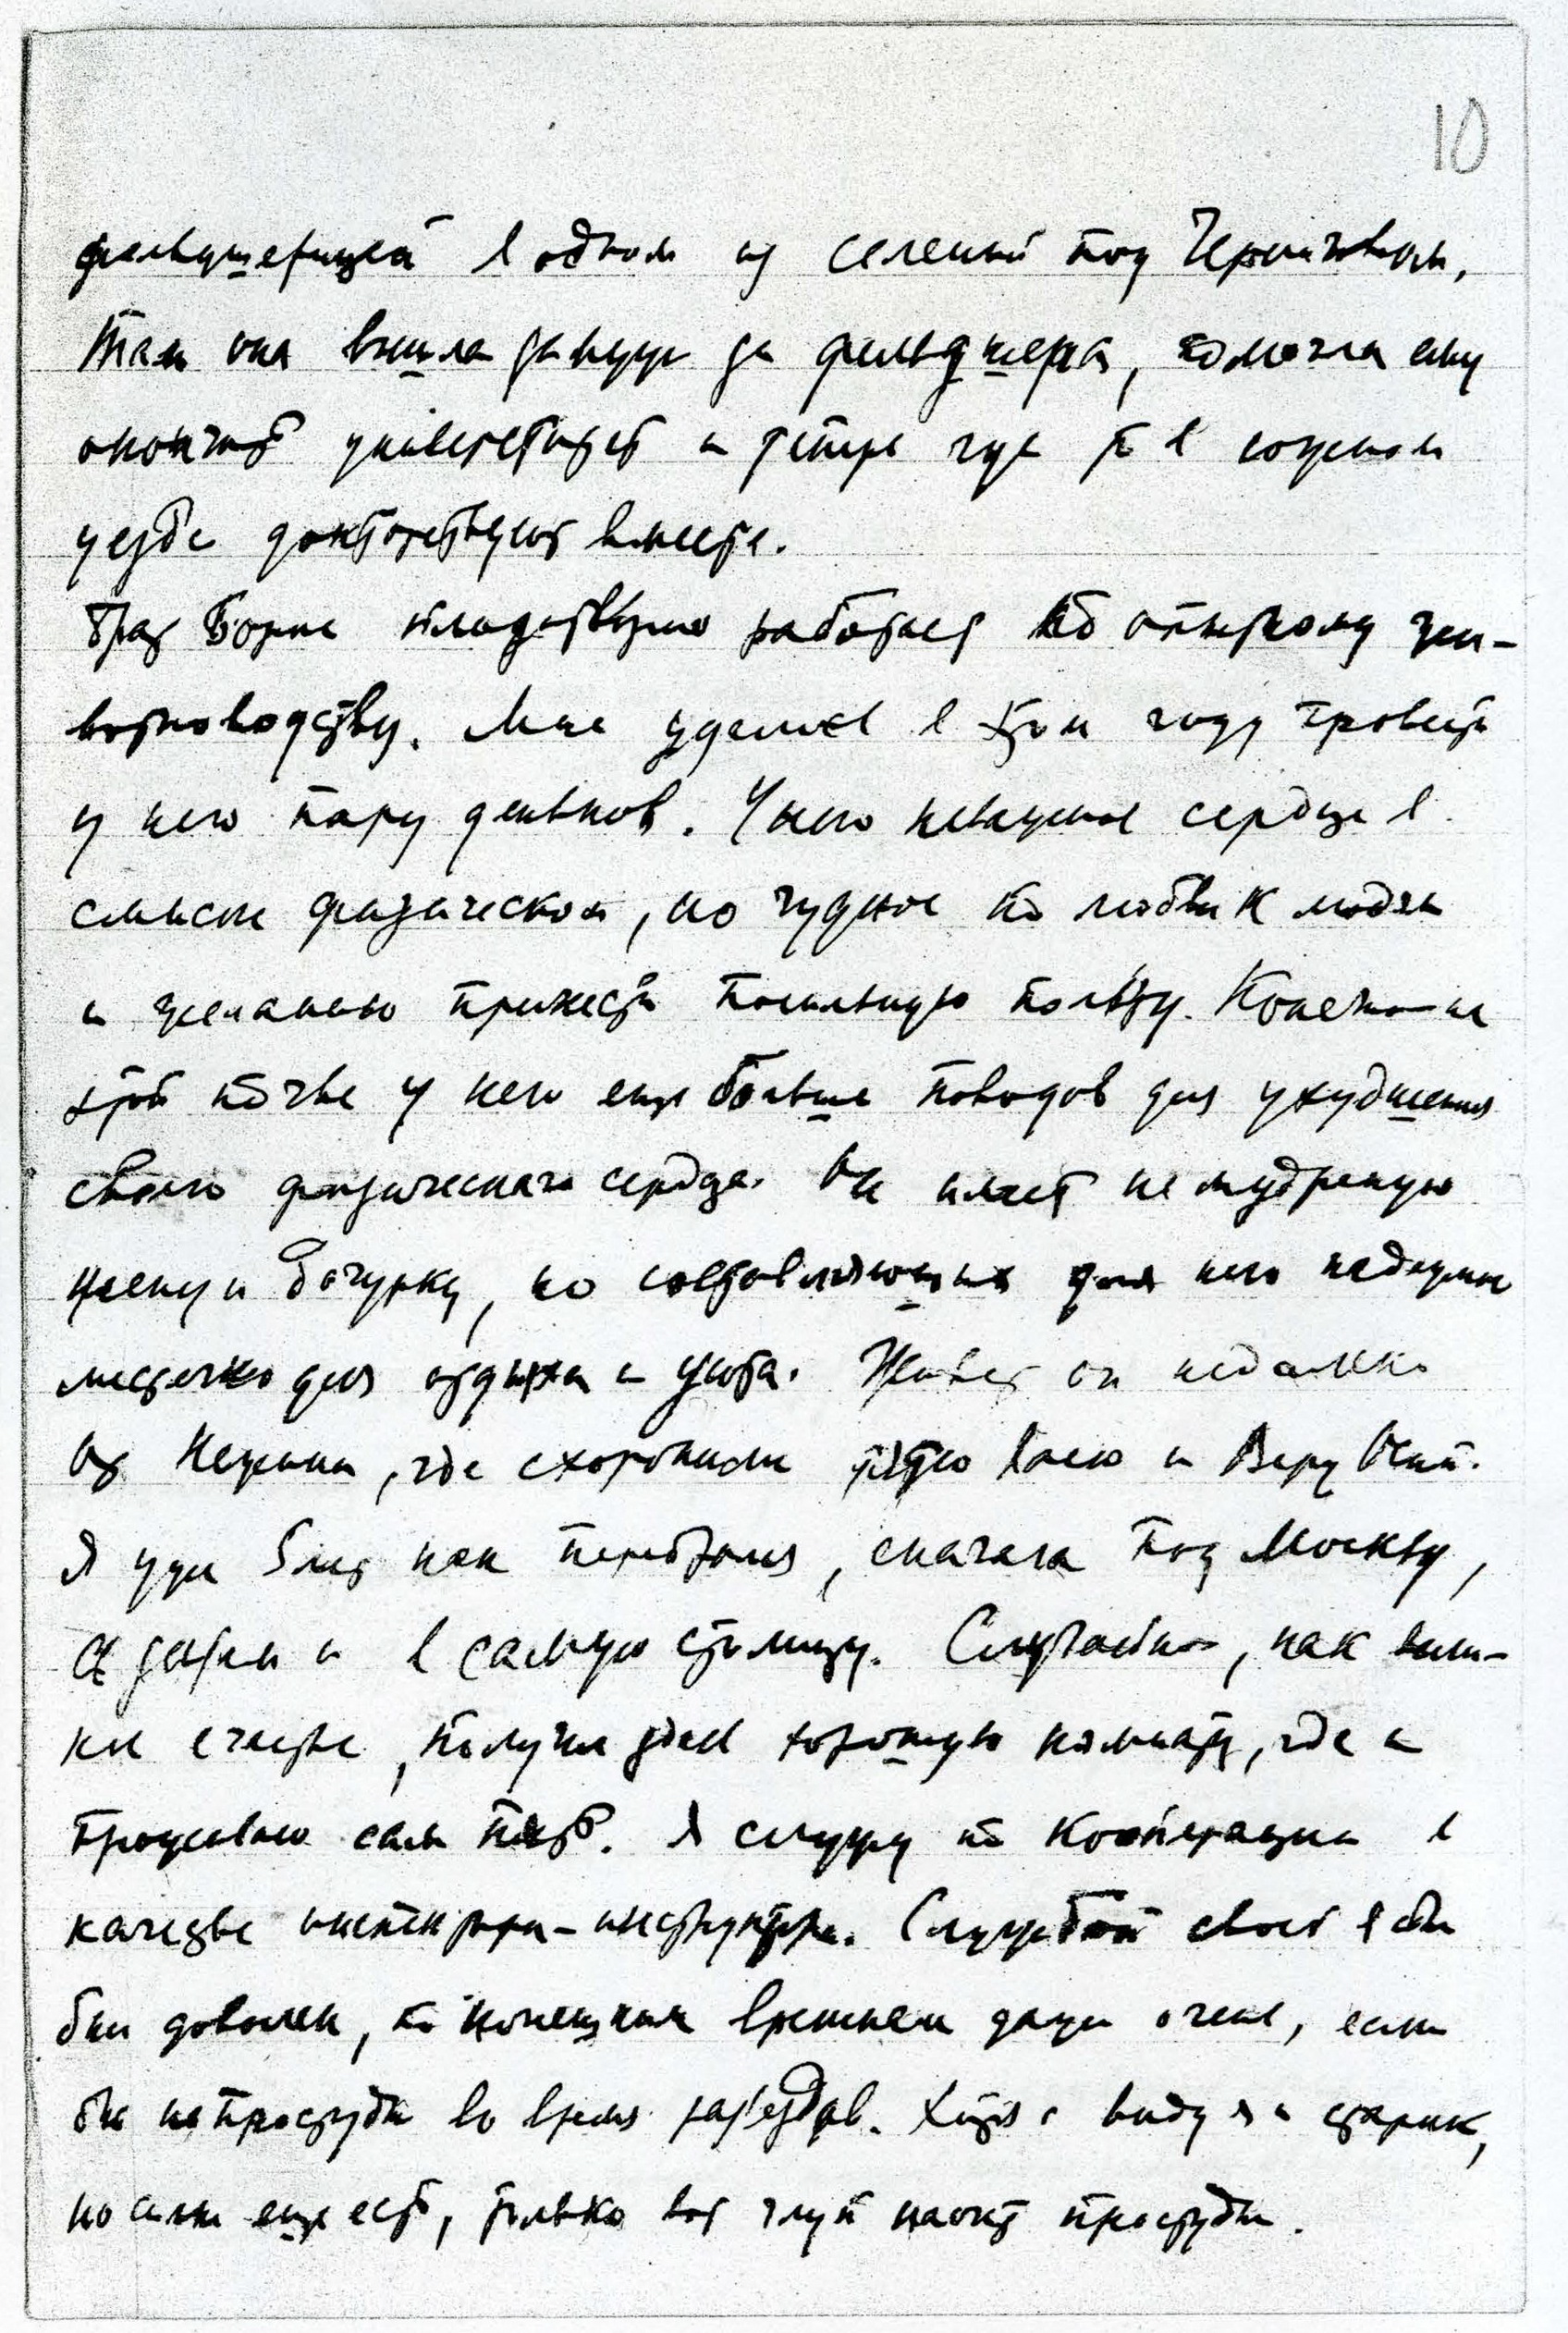 10
фельдшерицей в одном из селений под Черниговым.
Там она вышла замуж за фельдшера, помогла ему
окончить университет и теперь где то в южном
уезде докторствуют вместе.
Брат Боря плодотворно работает по опытному жи-
вотноводству. Мне удалось в этом году провести
у него пару деньков. У него неважное сердце в
смысле физическом, но чудное по любви к людям
и желанию принести посильную пользу. Конечно на
этой почве у него еще больше поводов для ухудшения
своего физического сердца. Он имеет не мудреную
жену и дочурку, но составляющих для него надежное
местечко для отдыха и уюта. Живет он недалеко
от Нежина, где схоронили тётю Васю и Веру Осип.
Я уже 5 лет как перебрался, сначала под Москву,
а затем и в самую столицу. Случайно, как вели-
кое счастье, получил здесь хорошую комнату, где и
проживаю сам пять. Я служу по Кооперации в
качестве инспектора-инструктора. Службой своей я бы
был доволен, по нонешним временам даже очень, если
бы не прострубы во время разъездов. Хотя с виду я и старик,
но силы еще есть, только вот глуп насчет простуды.